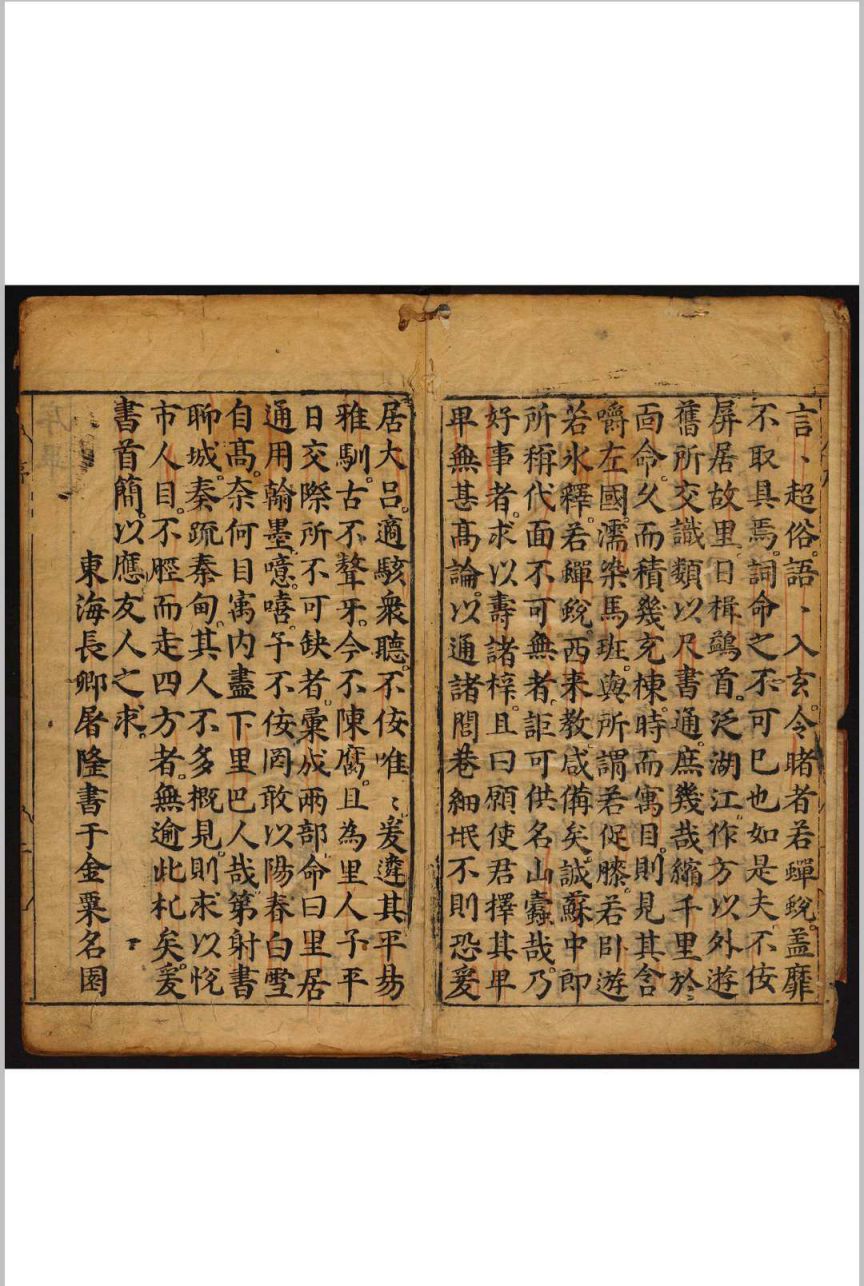 言、超俗。語、入玄。令睹者若蟬蛻。盖靡
不取具焉。詞命之不可已也如是夫。不佞
屏居故里。日楫鷁首。泛湖江。作方以外遊。
舊所交識。類以尺書通。庶幾哉縮千里於
面命。久而積幾充棟。時而寓目。則見其含
嚼左國。濡染馬班。與所謂若促膝。若卧遊。
若氷釋。若蟬蛻。西来教咸俻矣。誠蘇中郎
所稱代面不可無者。詎可供名山蠹哉。乃
好事者。求以壽諸梓。且曰願使君擇其卑
卑無甚高論。以通諸閭巷細氓。不則恐爰
居大吕。適駭衆聽。不佞唯〻爰遴其平易
雅馴。古不聱牙。今不陳腐。且為里人予平
日交際所不可缺者。彙成兩部命曰里居
通用翰墨。噫嘻。予不佞罔敢以陽春白雪
自高。奈何目寓内盡下里巴人哉。第射書
聊城。奏䟽秦甸。其人不多概見。則求以恱
市人目。不脛而走四方者。無逾此札矣。爰
書首簡。以應友人之求。
東海長卿屠隆書于金粟名園
序